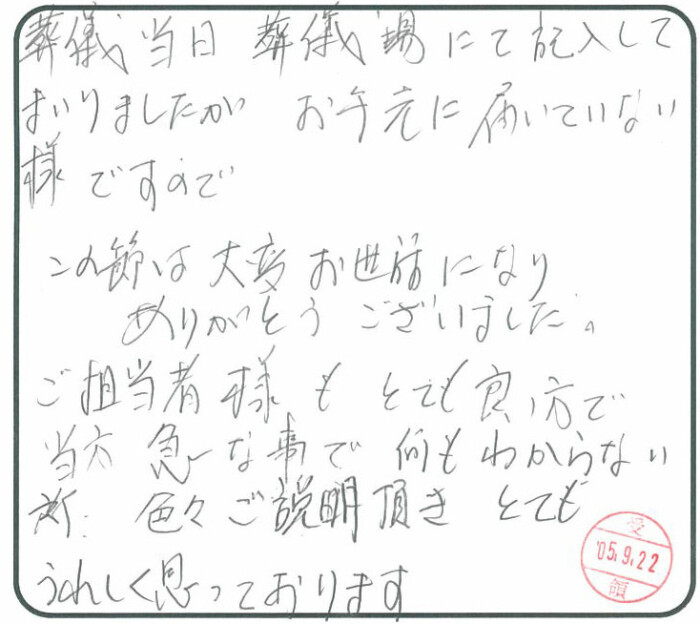 葬儀当日 葬儀場にて記入して
まいりましたが お手元に届いていない
様ですので
この節は大変お世話になり
ありがとうございました。
ご担当者様も とても良い方で
当方 急な事で 何もわからない
所 色々ご説明頂き とても
うれしく思っております
受
'05.9.22
領